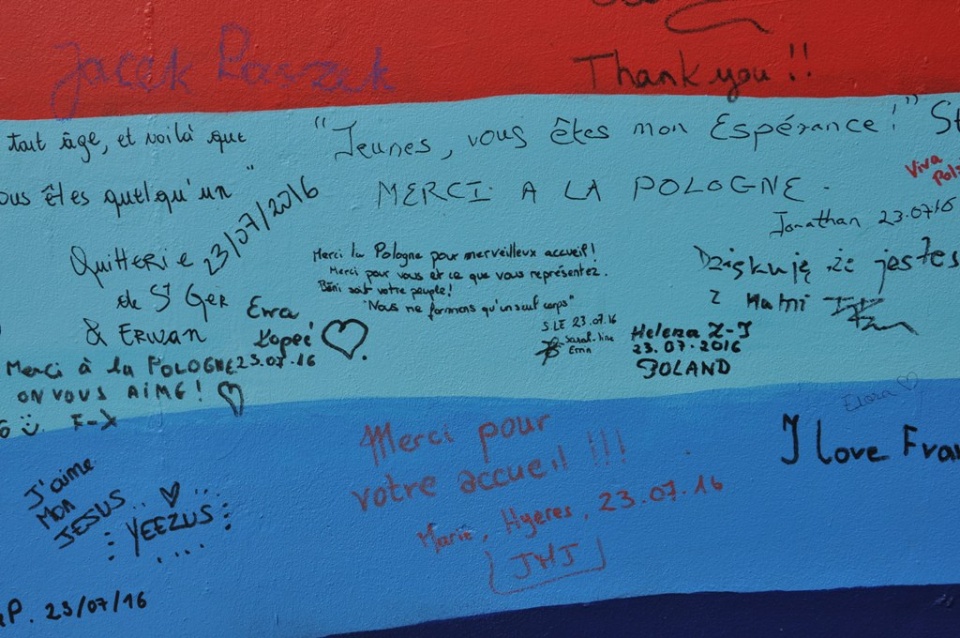 Jacek Paszek
Thank you !!
tout âge, et voilà que
"Jeunes, vous êtes mon Espérance!"
êtes quelqu'un"
MERCI A LA POLOGNE.
Viva
Jonathan 23.07.16
Quitterie 23/07/2016
de St Ger
& ERWAN
Merci la Pologne pour merveilleux accueil!
Merci pour vous et ce que vous représentez.
Béni soit votre peuple!
"Nous ne formons qu'un seul corps"
SLE 23.07.16
Dziękuję że jesteś
z nami
Ewa
23.07.16
Helena Z-J
23.07.2016
POLAND
Merci à la POLOGNE
ON VOUS AIME!
F-X
Merci pour
votre accueil !!!
Marie, Hyères, 23.07.16
JMJ
I love
J'aime
MON
JESUS
YEEZUS
P. 23/07/16